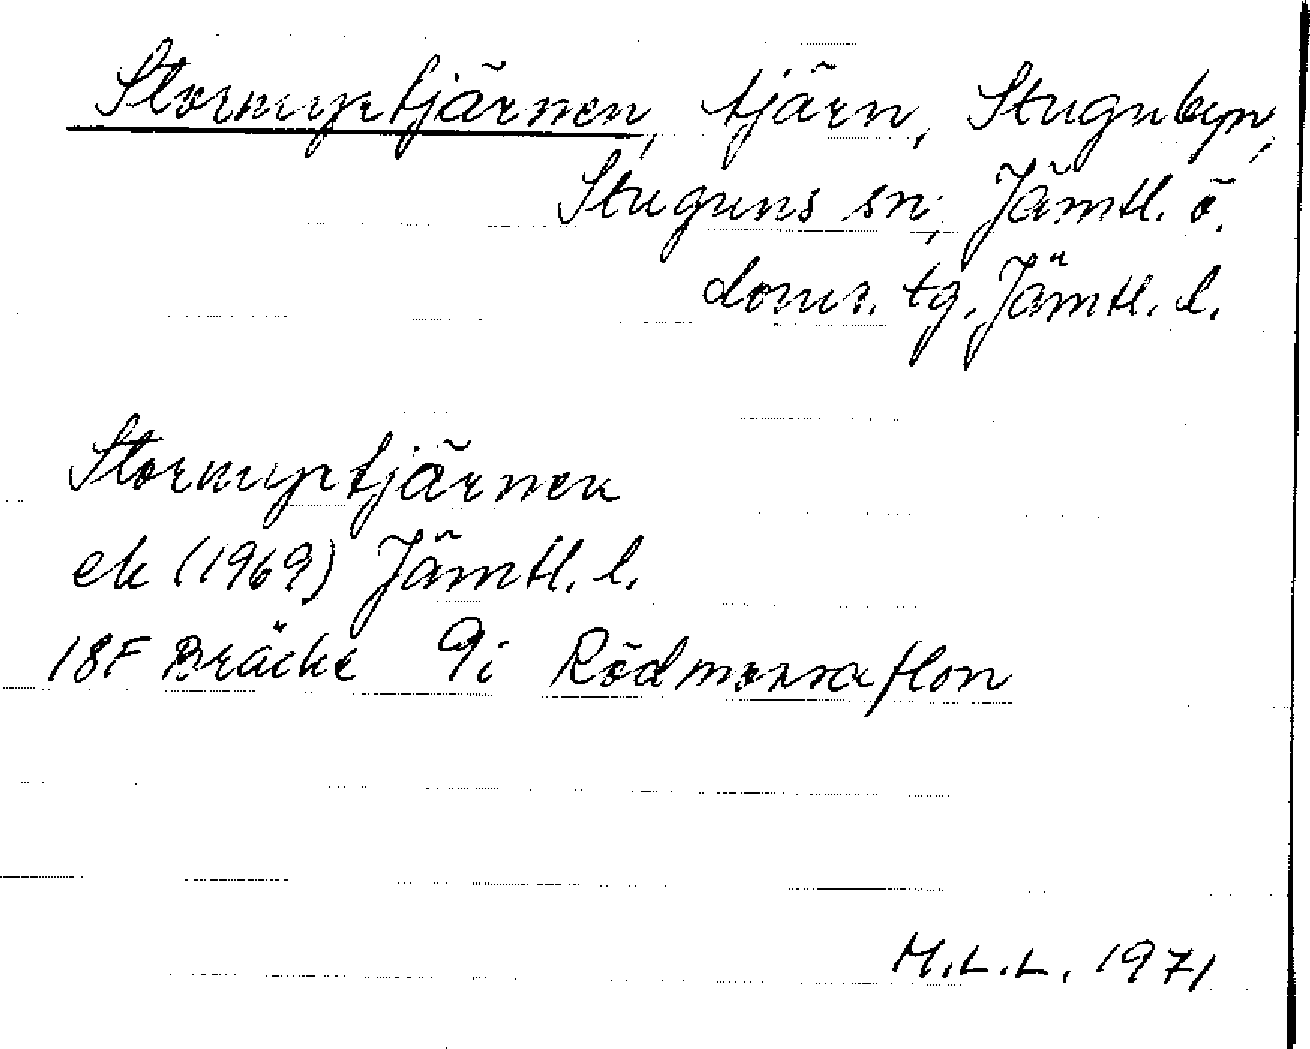 Stormyrtjärnen, tjärn, Stugubyn,
Stuguns sn, Jämtl. ö.
doms. tg. Jämtl. l.
Stormyrtjärnen
ek (1969) Jämtl. l.
18F Bräcke 9i Rödmossaflon
M.L.L. 1971